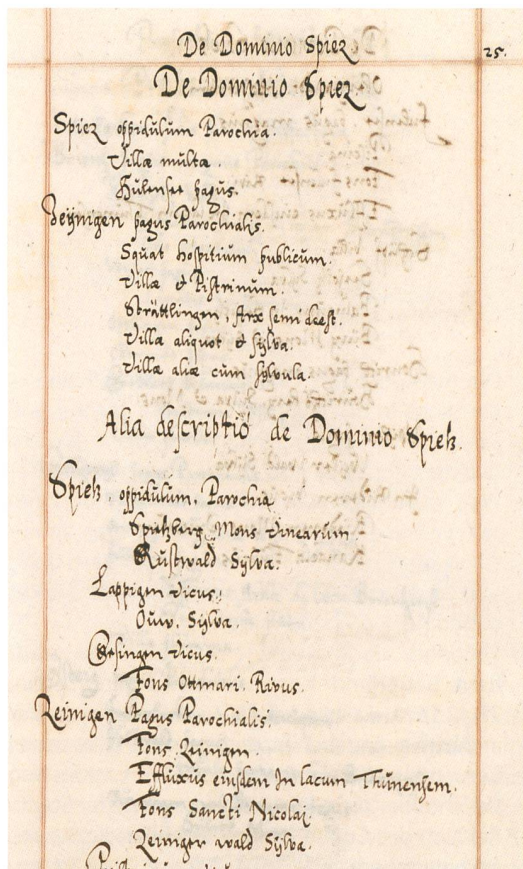 De Dominio Spiez
25.
De Dominio Spiez
Spiez oppidulum Parochia.
Villæ multæ
Hulensee pagus.
Zeÿnigen pagus Parochialis.
Squat hospitium publicum.
Villæ & Pistrinum.
Strättlingen, Arx semi deest.
Villæ aliquot & sylva.
Villæ aliæ cum sylvula.
Alia descriptio de Dominio Spietz.
Spietz, oppidulum, Parochia
Spietzberg Mons vinearum
Rustwald Sylva.
Lappigen vicus.
Ouw. Sylva.
vicus.
Fons Ottmari. Rivus.
Zeinigen Pagus Parochialis.
Fons Zeinigen.
Effluxus eiusdem In lacum Thunensem.
Fons Sancti Nicolai
Zeiniger wald Sylva.